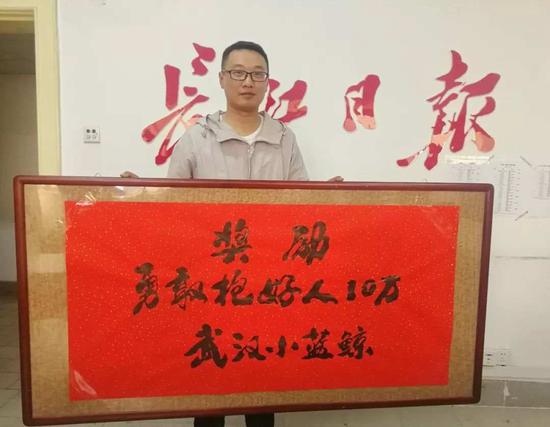 長江日報
奖励
勇敢抱好人10万
武汉小蓝鲸